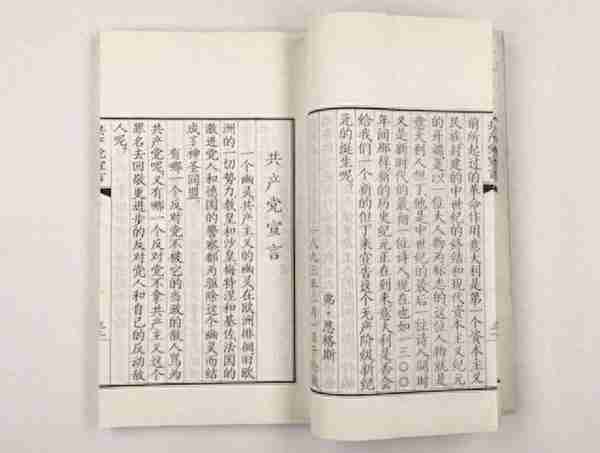 前所起过的革命作用意大利是第一个资本主义
民族封建的中世纪的终结和现代资本主义纪元
的开端是以一位大人物为标志的这位人物就是
意大利人但丁他是中世纪的最后一位诗人同时
又是新时代的最初一位诗人现在也如一三〇〇
年间那样新的历史纪元正在到来意大利是否会
给我们一个新的但丁来宣告这个无产阶级新纪
元的诞生呢。
弗·恩格斯
一八九三年
共产党宣言
一个幽灵共产主义的幽灵在欧洲徘徊旧欧
洲的一切势力教皇和沙皇梅特涅和基佐法国的
激进党人和德国的警察都为驱除这个幽灵而结
成了神圣同盟。
有哪一个反对党不被它的当政的敌人骂为
共产党呢。又有哪一个反对党不拿共产主义这个
罪名去回敬更进步的反对党人和自己的反动敌
人呢。
共产党宣言